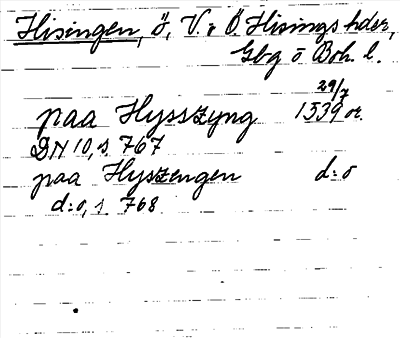 Hisingen, ö, V. o Ö. Hisings hder,
Gbg o Boh. l.
29/7
paa Hysszyng 1539 or.
DN 10, s. 767
paa Hyszengen d:o
d:o, s. 768